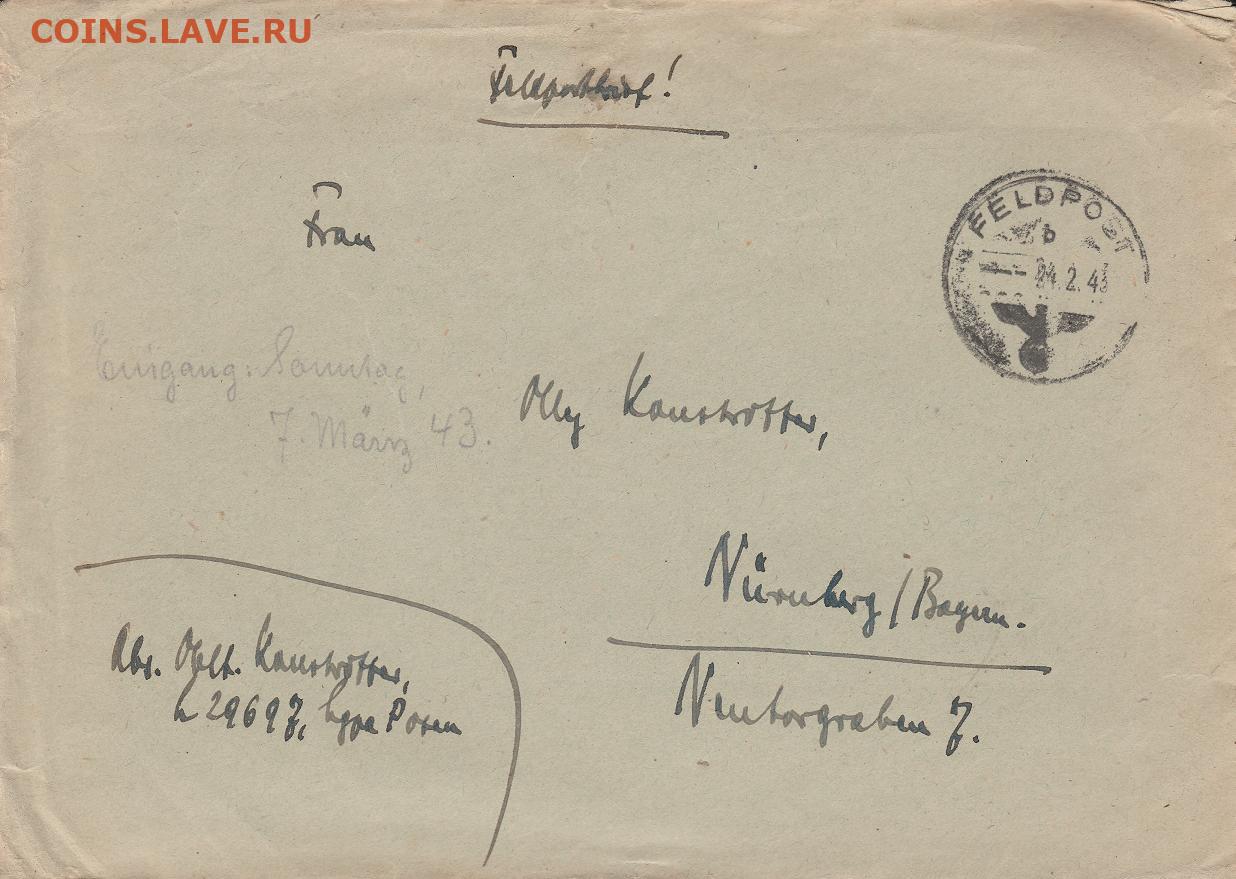 COINS.LAVE.RU
Feldpostbrief!
Frau
FELDPOST
b
24.2.43
Eingang: Sonntag,
7. März '43.
Olly
Nürnberg / Bayern.
Neutorgraben 7.
Abs. Oblt.
L 29697, Lgpa Posen